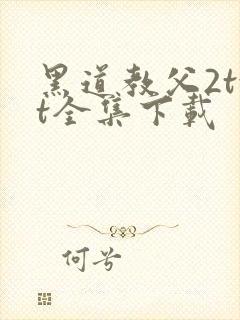 黑道教父2tx
t全集下载
何兮